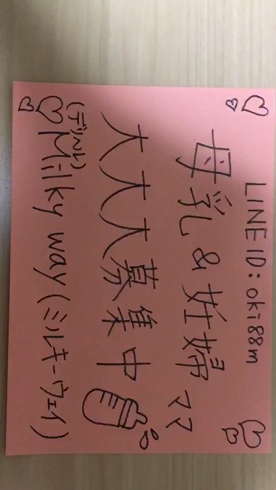 LINE ID:oki88m
母乳&妊婦ママ
大大大募集中
(デリヘル)
Milky way(ミルキーウェイ)